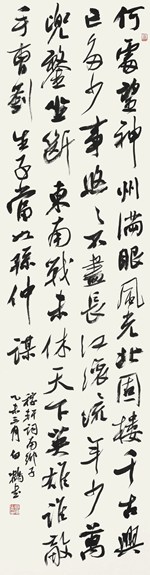 何處望神州滿眼風光北固樓千古興
亡多少事悠々不盡長江滚々流年少萬
兜鍪坐斷東南戰未休天下英雄誰敵
手曹劉生子當如孫仲謀
稼軒詞南鄉子
乙未三月白鶴書